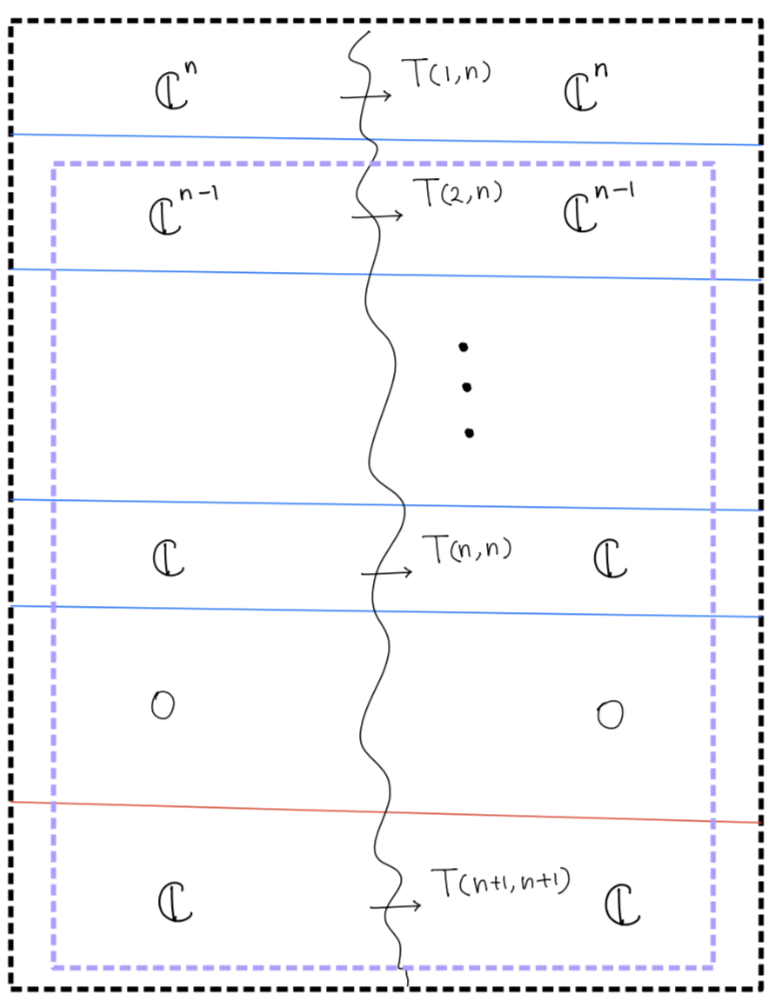 ℂⁿ T(1,n) ℂⁿ
ℂⁿ⁻¹ T(2,n) ℂⁿ⁻¹
ℂ T(n,n) ℂ
0 0
ℂ T(n+1,n+1) ℂ